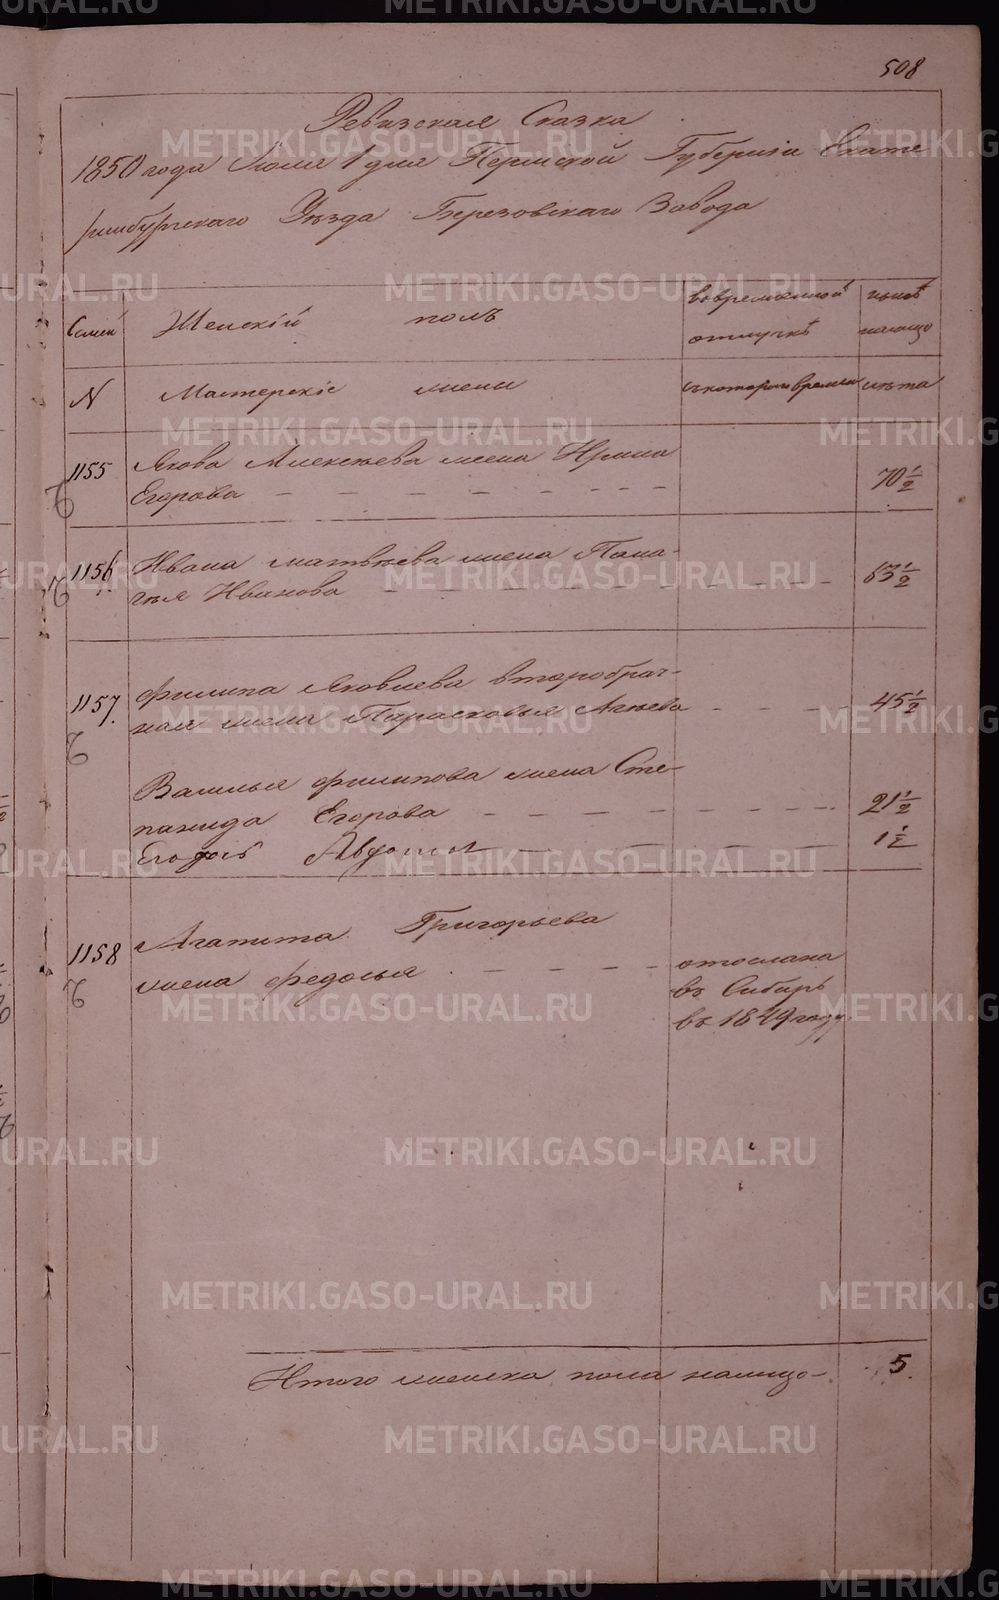 508
Ревизская Сказка
1850 года Июля 1 дня Пермской Губернiи Екате
ринбургскаго Уѣзда Березовскаго Завода
Семей Женскiй полъ во временной отлучкѣ нынѣ налицо
N Мастерскiе жены съ котораго времени лѣта
1155 Якова Алексѣева жена Ирина
Егорова 70 1/2
1156 Ивана Матвѣева жена Пела-
гѣя Иванова 63 1/2
1157. Филипа Яковлева второбрач-
ная жена Парасковья Агѣева 45 1/2
Василья Филипова жена Сте-
панида Егорова 21 1/2
Его дочь Авдотья 1 1/2
1158 Агапита Григорьева
жена Федосья отослана
въ Сибирь
въ 1849 году.
Итого женска пола налицо 5.
METRIKI.GASO-URAL.RU